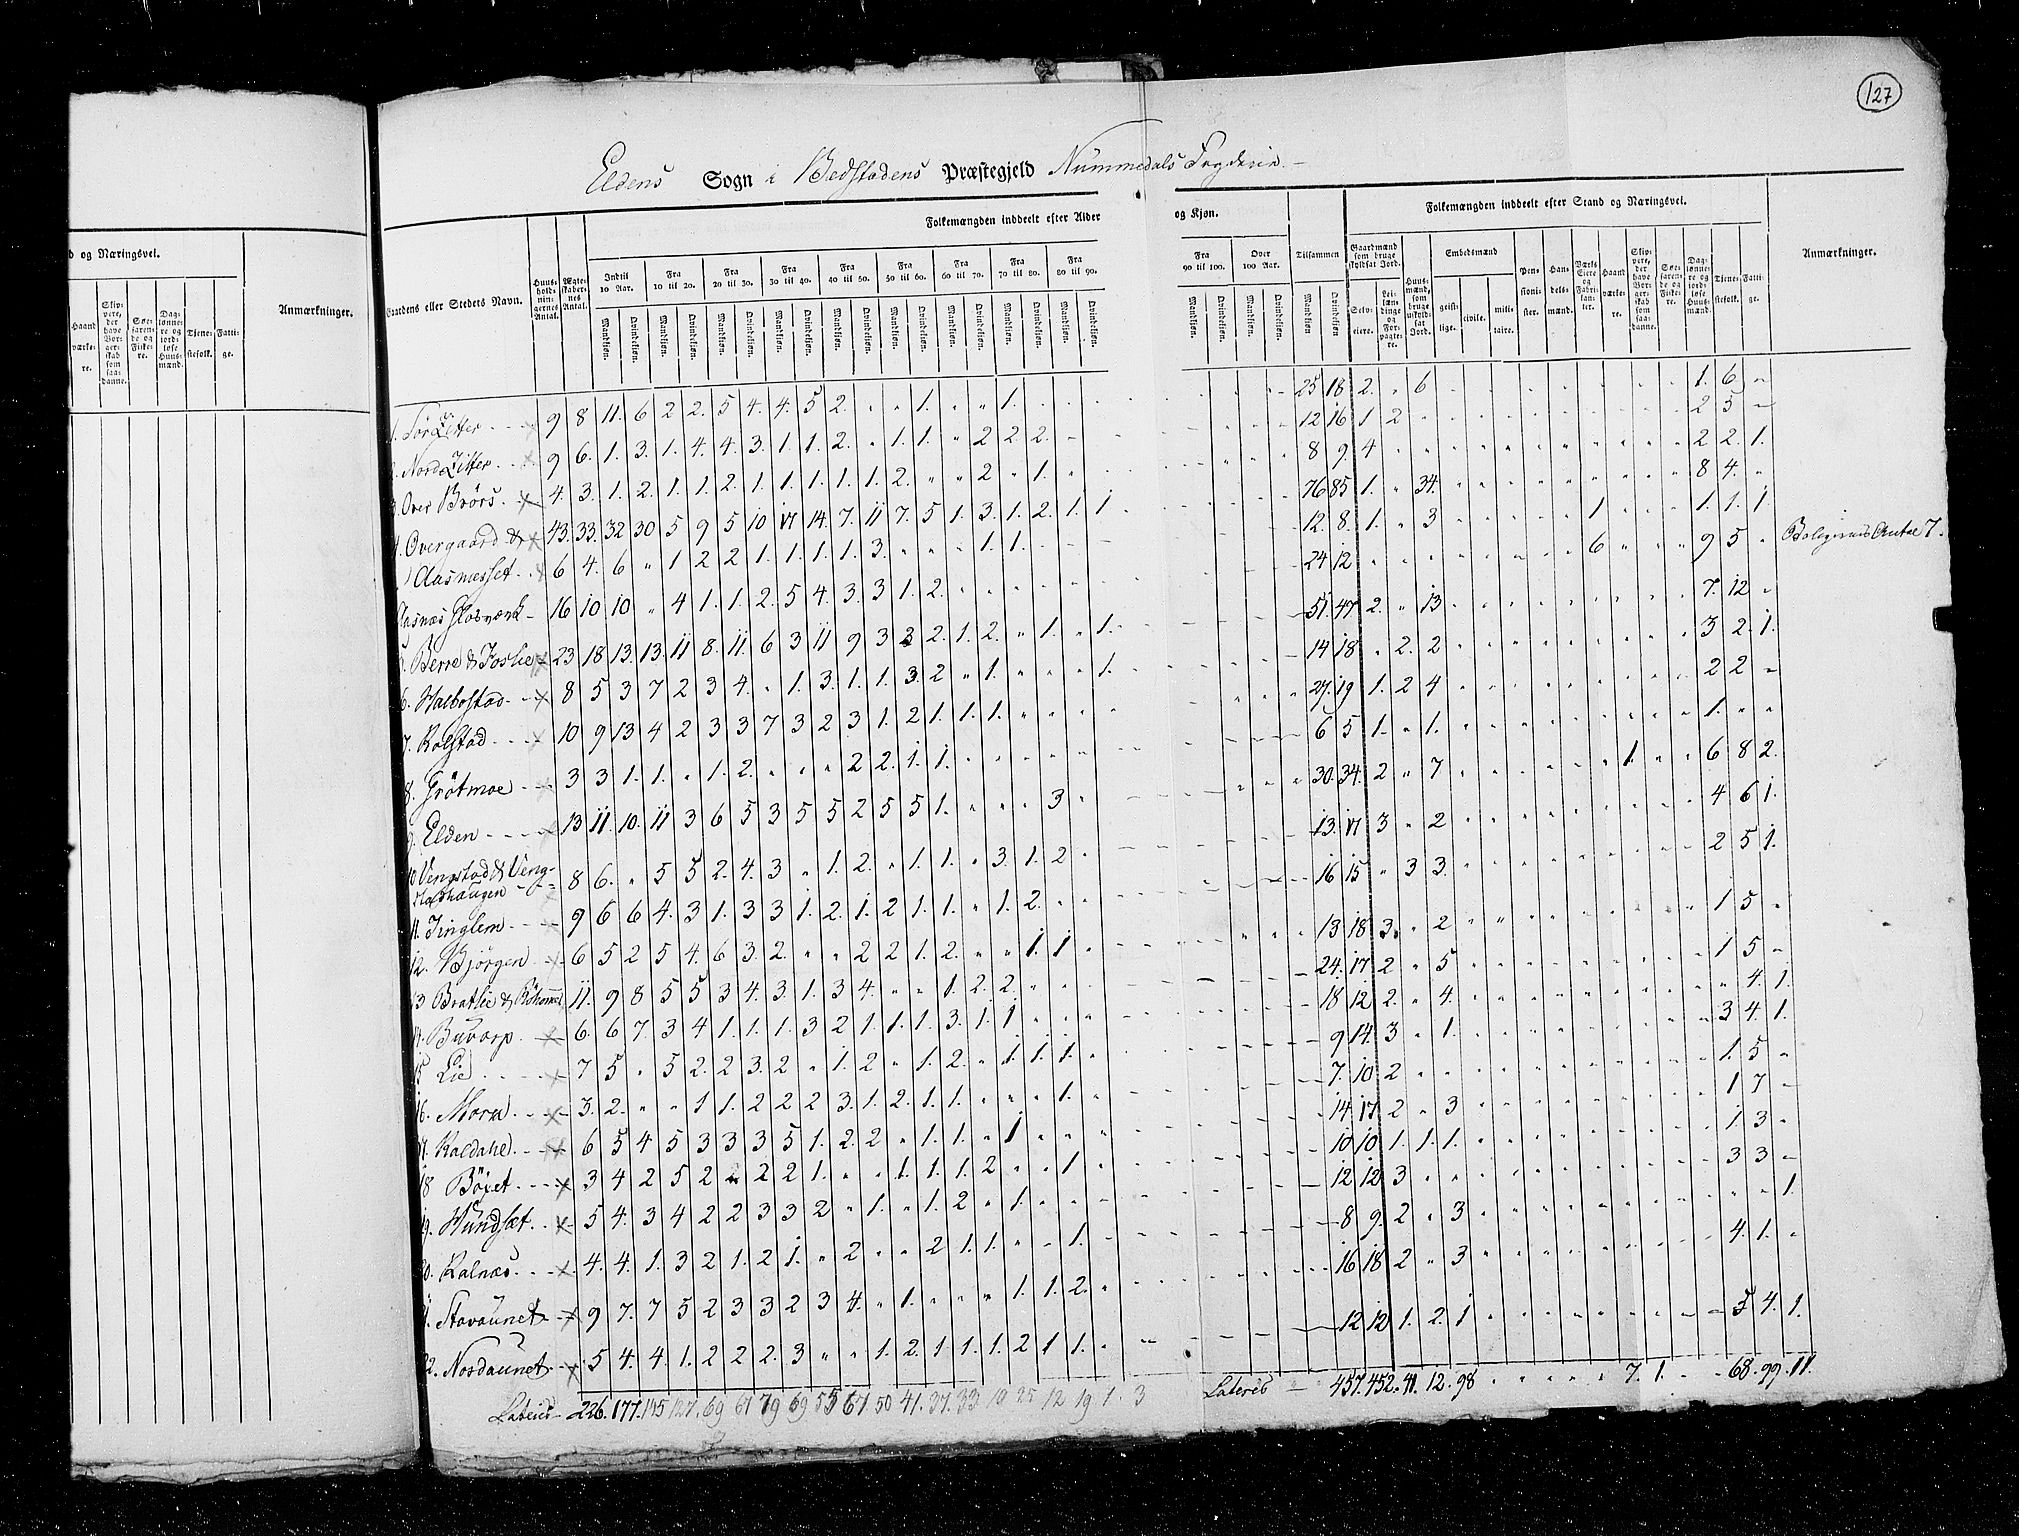 127
Eldens Sogn i Bedstadens Præstegjeld Nummedals Fogderie.
Folkemængden inddeelt efter Alder og Kjøn.
Folkemængden inddeelt efter Stand og Næringsvei.
d og Næringsvei.
Anmærkninger.
Gaardens eller Stedets Navn.
Huusholdningernes Antal.
Ægteskabernes Antal.
Indtil 10 Aar.
Fra 10 til 20.
Fra 20 til 30.
Fra 30 til 40.
Fra 40 til 50.
Fra 50 til 60.
Fra 60 til 70.
Fra 70 til 80.
Fra 80 til 90.
Fra 90 til 100.
Over 100 Aar.
Tilsammen
Mandkjøn. Qvindekjøn.
Gaardmænd som bruge skyldsat Jord.
Selveiere.
Leilændinge og Forpagtere.
Huusmænd, som bruge uskyldsat Jord.
Embedsmænd
geistlige. civile. militaire.
Pensionister.
Handelsmænd.
Værkseiere og Fabrikanter.
Haandværkere.
Skippere, der have Borgerskab som saadanne.
Søefarende og Fiskere.
Daglønnere og jordløse Huusmænd.
Tjenestefolk.
Fattige.
Anmærkninger.
9 8 11. 6 2 2. 5 4. 4. 5 2. 1. 1. 25 18 2. 6 1. 6
9 6. 1. 3. 1. 4. 4. 3. 1. 1. 2. 1. 1. 2 2 2. 12 16 1 2 2 5
3. Over Brörs. 4. 3. 1. 2. 1. 1. 2. 1. 1. 1. 1. 1. 2. 2 1. 8 9. 4 2 2. 1.
4. Overgaard 43. 33. 32 30 5 9 5 10 17 14. 7. 11 7. 5 1. 3. 1. 2. 1. 1 76 85 1. 34. 8 4.
Aasnæsset 6 4. 6 1 2 2 1. 1. 1. 1. 3. 1. 1. 12. 8. 1. 3 1 1. 1. 1
16 10 10 4 1. 1. 2. 5 4. 3. 3 1. 2. 24 12 6 9 5 Antal 7.
Berre & Foslie 23 18 13. 13. 11 8. 11. 6 3 11 9 3 2. 1. 2. 1. 1. 51. 47 2. 13 7. 12
6. 8 5 3 7 2 3 4. 1. 3. 1. 1. 3. 2 1. 1. 14 18 2. 2 3 2. 1.
7. Kolstad 10 9 13 4 2 3 3 7 3 2 3 1. 2 1. 1. 1. 27. 19 1. 2 4 2 2
8. Grötmoe 3 3 1. 1. 1. 2. 2 2. 1. 1. 6 5 1. 1. 1.
9. Elden 13 11. 10. 11 3 6 5 3 5 5 2 5 5 1. 3 30. 34. 2 7 1. 6 8 2.
10 Vengstad & Vengstadhaugen 8 6. 5 5 2. 4. 3 1. 2. 1. 1. 3. 1. 2 13. 17 3 2 4 6 1.
11. 9 6 6 4. 3 1. 3 3 1. 2. 1. 2 1. 1. 1. 2. 16 15 3 3. 2 5 1.
12. Bjørgen 6 5 2 5 4. 6 3. 2. 2 2 1. 2. 1. 1. 13 18 3. 2 1 5
13 Bratlie 11. 9 8 5 5 3 4. 3. 1. 3 4. 1. 2. 2. 24. 17 2 5 1 5
14. Buvarp 6. 6 7. 3 4 1. 1. 1. 3 2 1. 1. 1. 3. 1. 1 18 12 2. 4. 4. 1.
15 Lie 7 5 5 2. 2 3. 2 1. 2 1. 2. 1. 1. 1. 9 14. 3 1. 3 4. 1.
16. 3. 2. 1 1. 2 2 2 3. 1. 2. 1. 1. 1. 7. 10 2 1. 5
17. Kaldahl 6 5 4 5 3 3 3 5 1. 2. 2 1. 1. 1 14. 17. 2 3 1 7
18 3 4 2 5 2 2 2 1. 1. 1. 1. 2 1. 10 10 1. 1. 1. 1. 3
19. Hundsæt 5 4. 3 4 2 2 3 3 2 1. 1. 2 1. 12 12 3 3 3
20. Kalnæs 4. 4. 1. 3 2 1. 2 1. 2 2 1. 1. 1. 8 9. 2 3 1.
21. Stovaunet 9 7. 7 5 2 3 3 2 3 4. 1. 1. 1. 2. 16 18 2 3 4. 1.
22. Nordaunet 5 4. 4. 1. 2 2 2. 3 1. 2. 1 1. 1. 2 1 1. 12 12 1. 2. 1 5 4. 1.
Lateris 226. 177. 145 127. 69 67 79 69 55 67. 50 41. 37. 33 19 25 12 19 1. 3
Lateris 457. 452. 41. 12. 98 7. 1. 68. 99. 11.